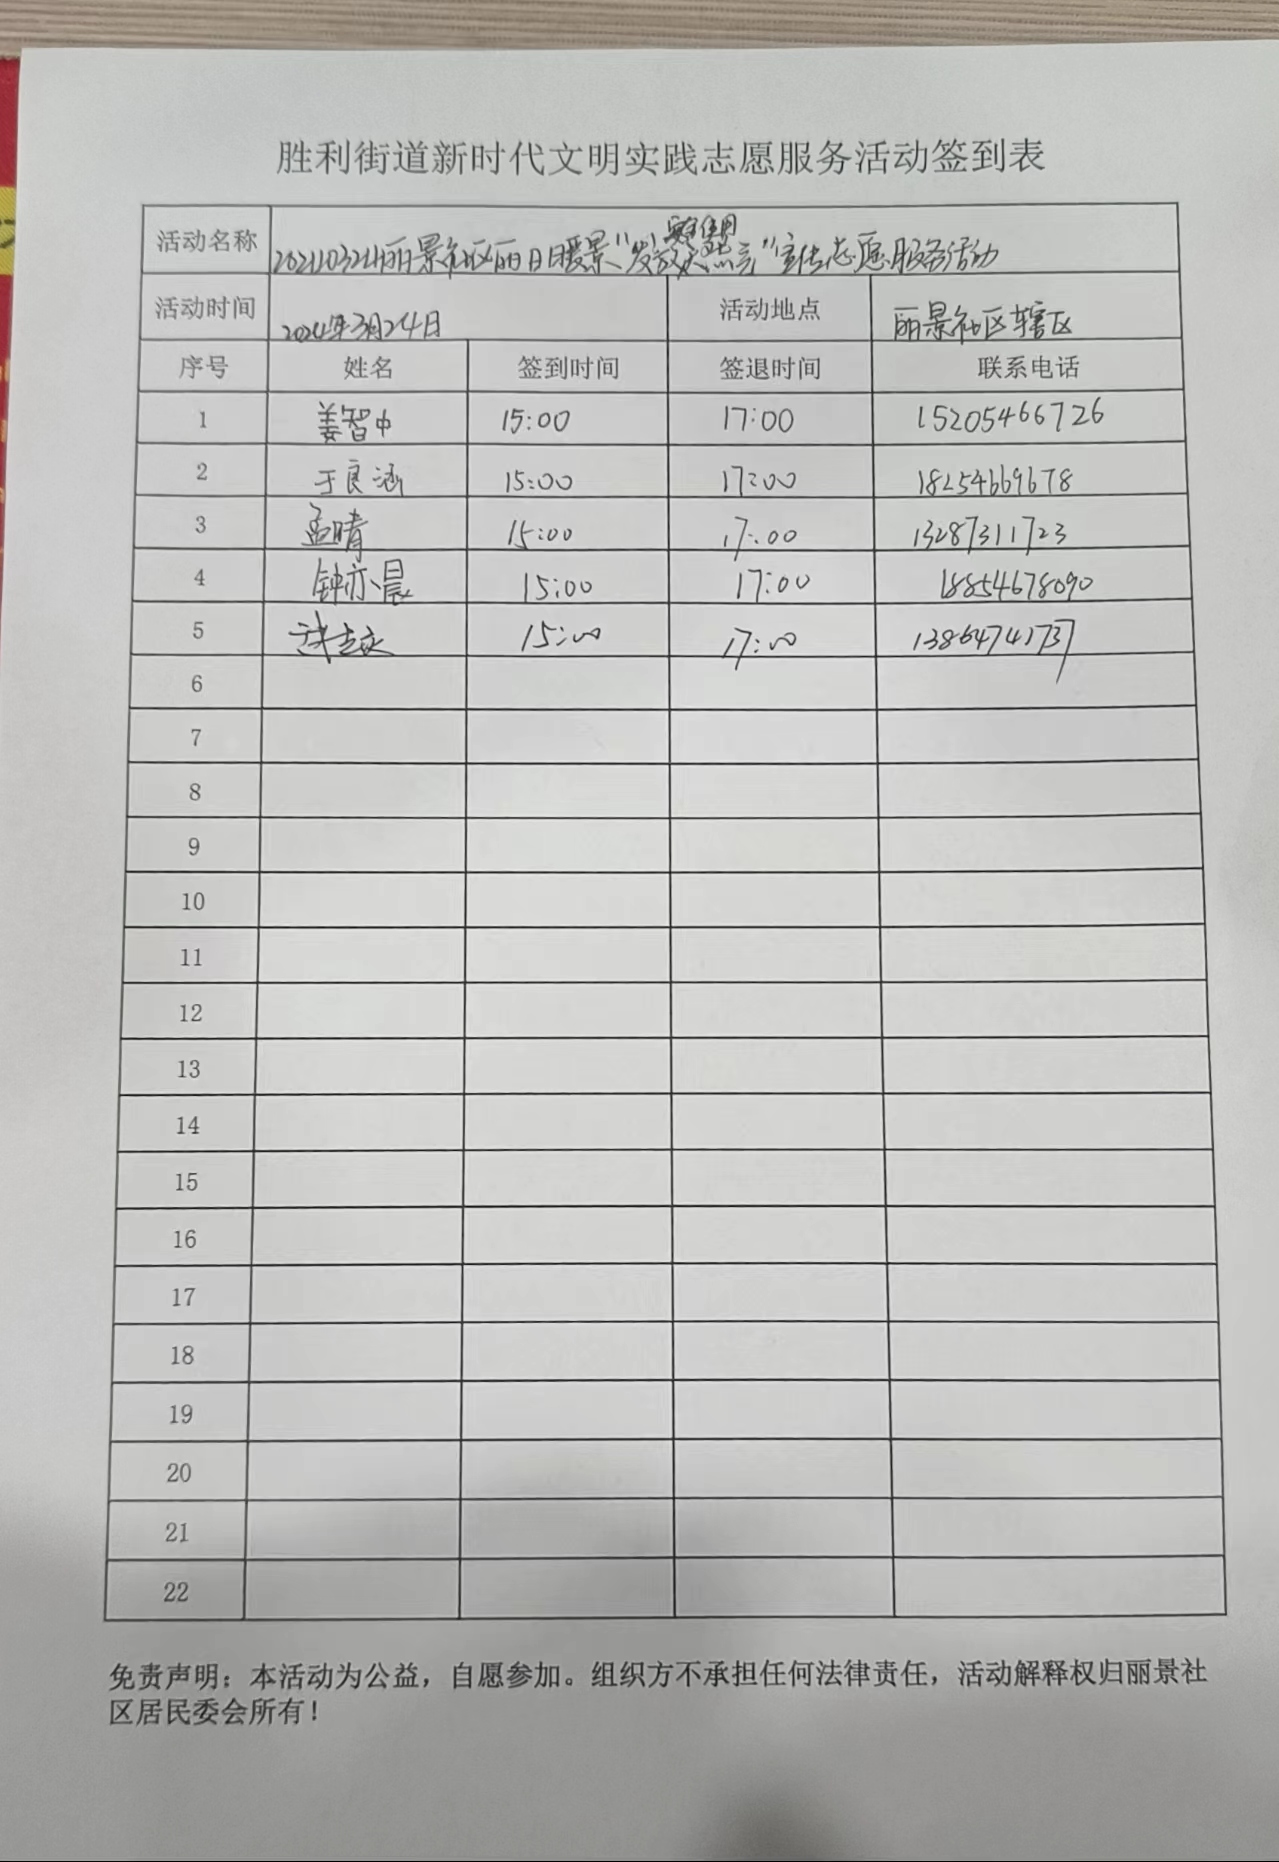 胜利街道新时代文明实践志愿服务活动签到表
活动名称 20240324丽景社区丽日暖景"发放 宣传志愿服务活动
活动时间 2024年3月24日 活动地点 丽景社区辖区
序号 姓名 签到时间 签退时间 联系电话
1 姜智中 15:00 17:00 15205466726
2 于良涵 15:00 17:00 18254669678
3 孟晴 15:00 17:00 13287311723
4 钟亦晨 15:00 17:00 18854678090
5 15:00 17:00 13864741737
6
7
8
9
10
11
12
13
14
15
16
17
18
19
20
21
22
免责声明：本活动为公益，自愿参加。组织方不承担任何法律责任，活动解释权归丽景社
区居民委会所有！